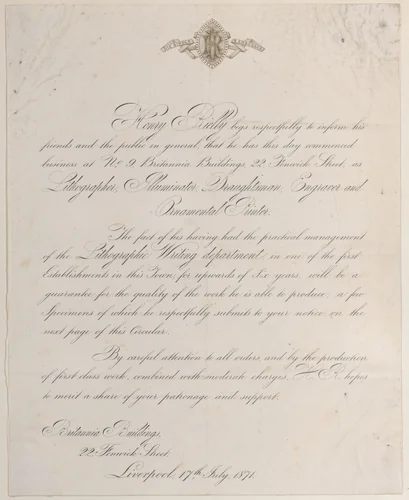 Henry Reilly begs respectfully to inform his
friends and the public in general, that he has this day commenced
business at No. 9 Britannia Buildings, 22 Fenwick Street, as
Lithographer, Illuminator, Draughtsman, Engraver and
Ornamental Printer.
The fact of his having had the practical management
of the Lithographic Writing department in one of the first
Establishments in this Town, for upwards of six years, will be a
guarantee for the quality of the work he is able to produce, a few
Specimens of which he respectfully submits to your notice on the
next page of this Circular.
By careful attention to all orders, and by the production
of first class work, combined with moderate charges, H. R. hopes
to merit a share of your patronage and support.
Britannia Buildings,
22 Fenwick Street,
Liverpool, 17th July, 1871.